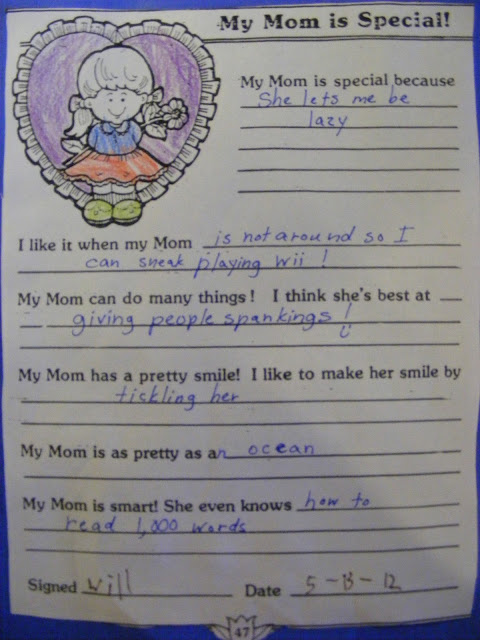 My Mom is Special!
My Mom is special because
She lets me be
lazy
I like it when my Mom is not around so I
can sneak playing wii !
My Mom can do many things! I think she's best at
giving people spankings !
My Mom has a pretty smile! I like to make her smile by
tickling her
My Mom is as pretty as an ocean
My Mom is smart! She even knows how to
read 1,000 words
Signed Will Date 5-13-12
47